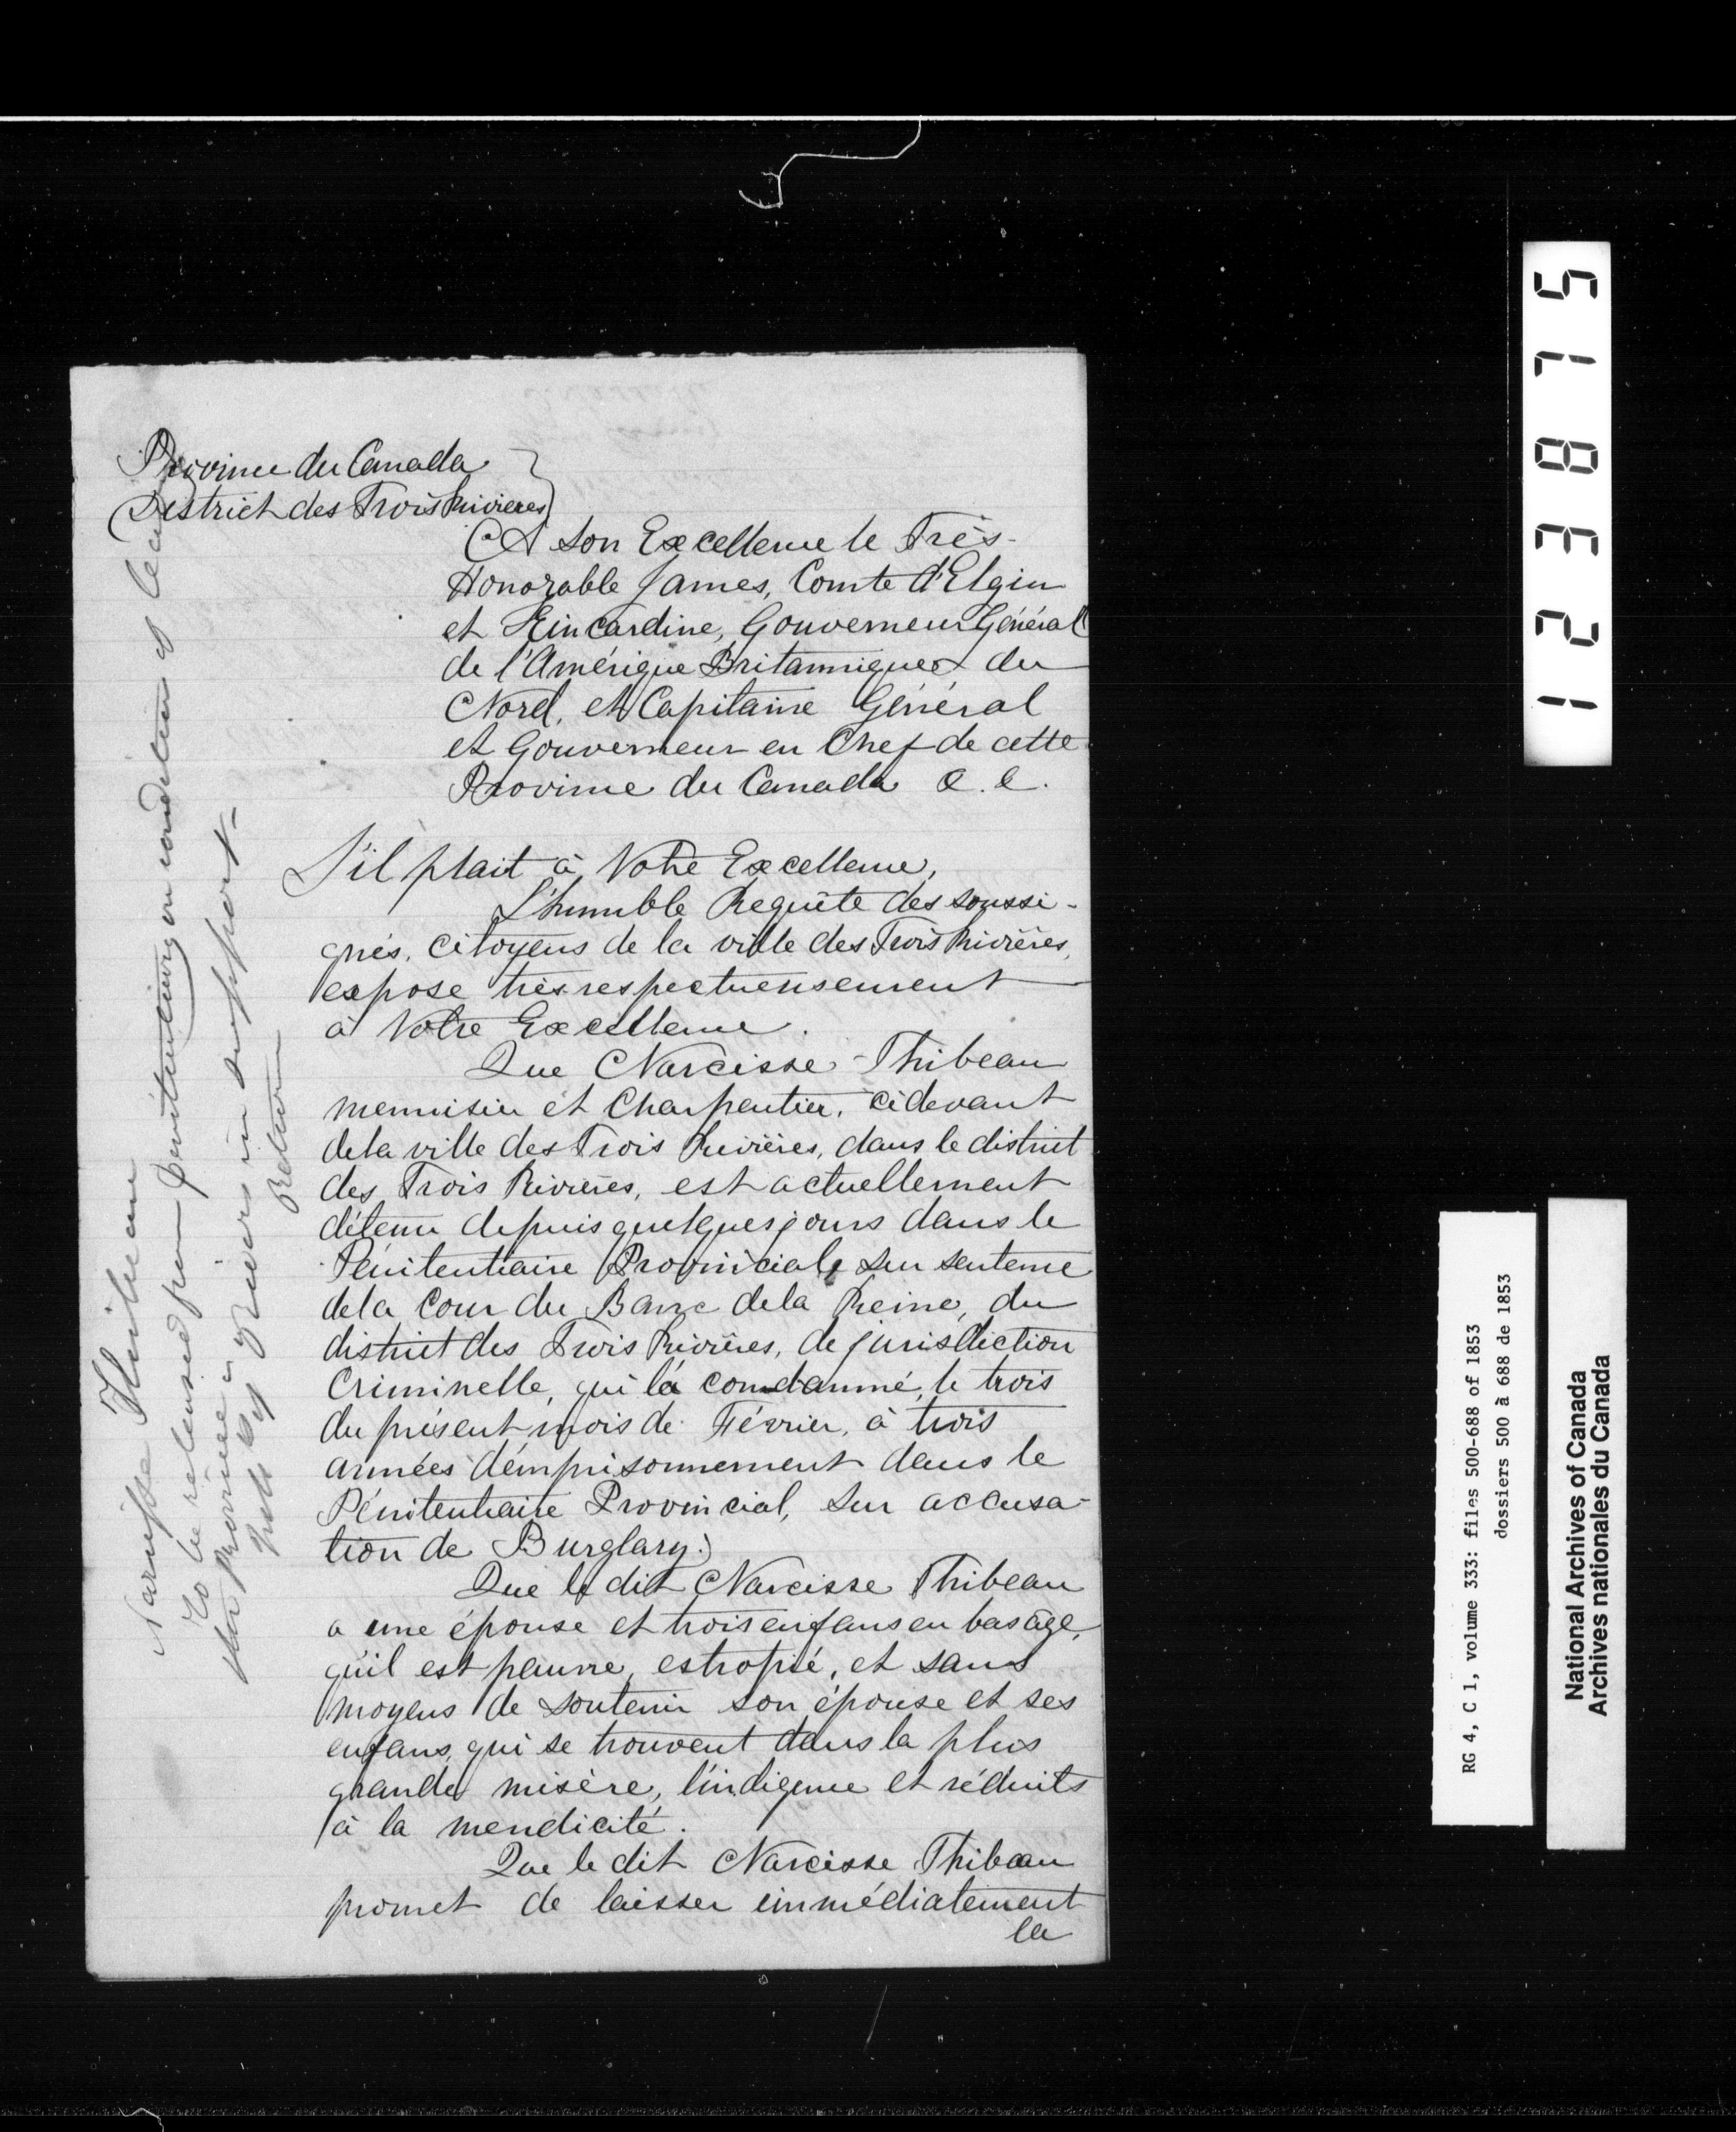 Province du Canada
District des Trois Rivieres
A Son Excellence le Très-
Honorable James, Comte d'Elgin
et Kincardine, Gouverneur Général
de l'Amérique Britannique du
Nord, et Capitaine Général
et Gouverneur en Chef de cette
Province du Canada &. &.
S'il plait à Votre Excellence,
L'humble Requête des soussi-
gnés, citoyens de la ville des Trois Rivières,
expose très respectueusement
à Votre Excellence.
Que Narcisse Thibeau
menuisier et Charpentier, cidevant
de la ville des Trois Rivières, dans le district
des Trois Rivières, est actuellement
détenu depuis quelques jours dans le
Pénitentiaire Provincial, sur sentence
de la Cour du Banc de la Reine, du
district des Trois Rivières, de jurisdiction
Criminelle, qui l'a condamné, le trois
du présent mois de Février, à trois
années d'emprisonnement dans le
Pénitentiaire Provincial, sur accusa-
tion de Burglary.
Que le dit Narcisse Thibeau
a une épouse et trois enfans en bas âge,
qu'il est pauvre, estropié, et sans
moyens de soutenir son épouse et ses
enfans, qui se trouvent dans la plus
grande misère, l'indigence et réduits
à la mendicité.
Que le dit Narcisse Thibeau
promet de laisser immédiatement
la
Narcisse Thibeau
To be released from penitentiary on condition of
the Province
Rivers in support-
Return
123875
RG 4, C 1, volume 333: files 500-688 of 1853
dossiers 500 à 688 de 1853
National Archives of Canada
Archives nationales du Canada